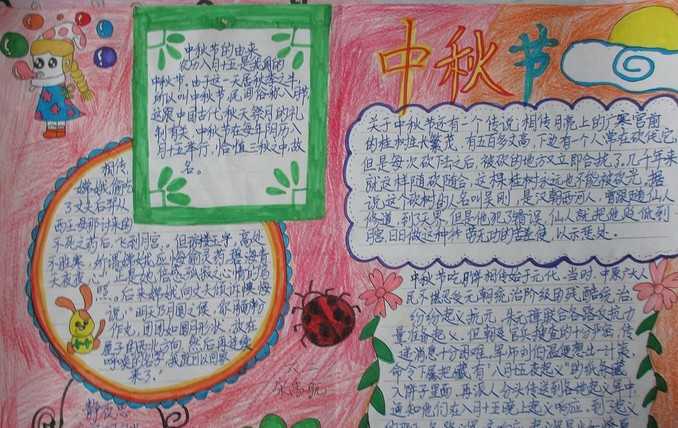 中秋节
中秋节的由来
农历八月十五是我国的
中秋节。由于这一天居秋季之半,
所以叫中秋节,民间俗称八月节
这跟中国古代秋天祭月的礼
制有关。中秋节在每年阴历八
月十五举行,恰值三秋之中,故
名。
关于中秋节还有一个传说:相传月亮上的广寒宫前
的桂树生长繁茂,有五百多丈高,下边有一个人常在砍伐它,
但是每次砍下去之后,被砍的地方又立即合拢了,几千年来
就这样随砍随合,这棵桂树永远也不能被砍光。据
说这个砍树的人名叫吴刚,是汉朝西河人,曾跟随仙人
修道,到了天界,但是他犯了错误,仙人就把他贬低到
月宫,日日做这种 劳无功的苦差使,以示惩处。
相传,
嫦娥偷吃
了丈夫后羿从
西王母那讨来的
不死之药后,飞到月宫。但琼楼玉宇,高处
不胜寒,所谓嫦娥应悔偷灵药,碧海青
天夜夜心,正是她倍感孤寂之心情的写
照。后来嫦娥向丈夫倾诉懊悔
说:"明天乃月圆之候,你用面粉
作丸,团团如圆月形状,放在
屋子的西北方向,然后再连续
呼唤我的名字,我就可以回家
来了。"
中秋节吃月饼相传始于元代。当时,中原广大人
民不堪忍受元朝统治阶级的残酷统治,
纷纷起义抗元。朱元璋联合各路反抗力
量准备起义。但朝庭官兵搜查的十分严密,传
递消息十分困难。军师刘伯温便想出一计策,
命令下属把藏有"八月十五夜起义"的纸条藏
入饼子里面,再派人分头传送到各地起义军中,
通知他们在八月十五日晚上起义响应。到了起义
静夜思